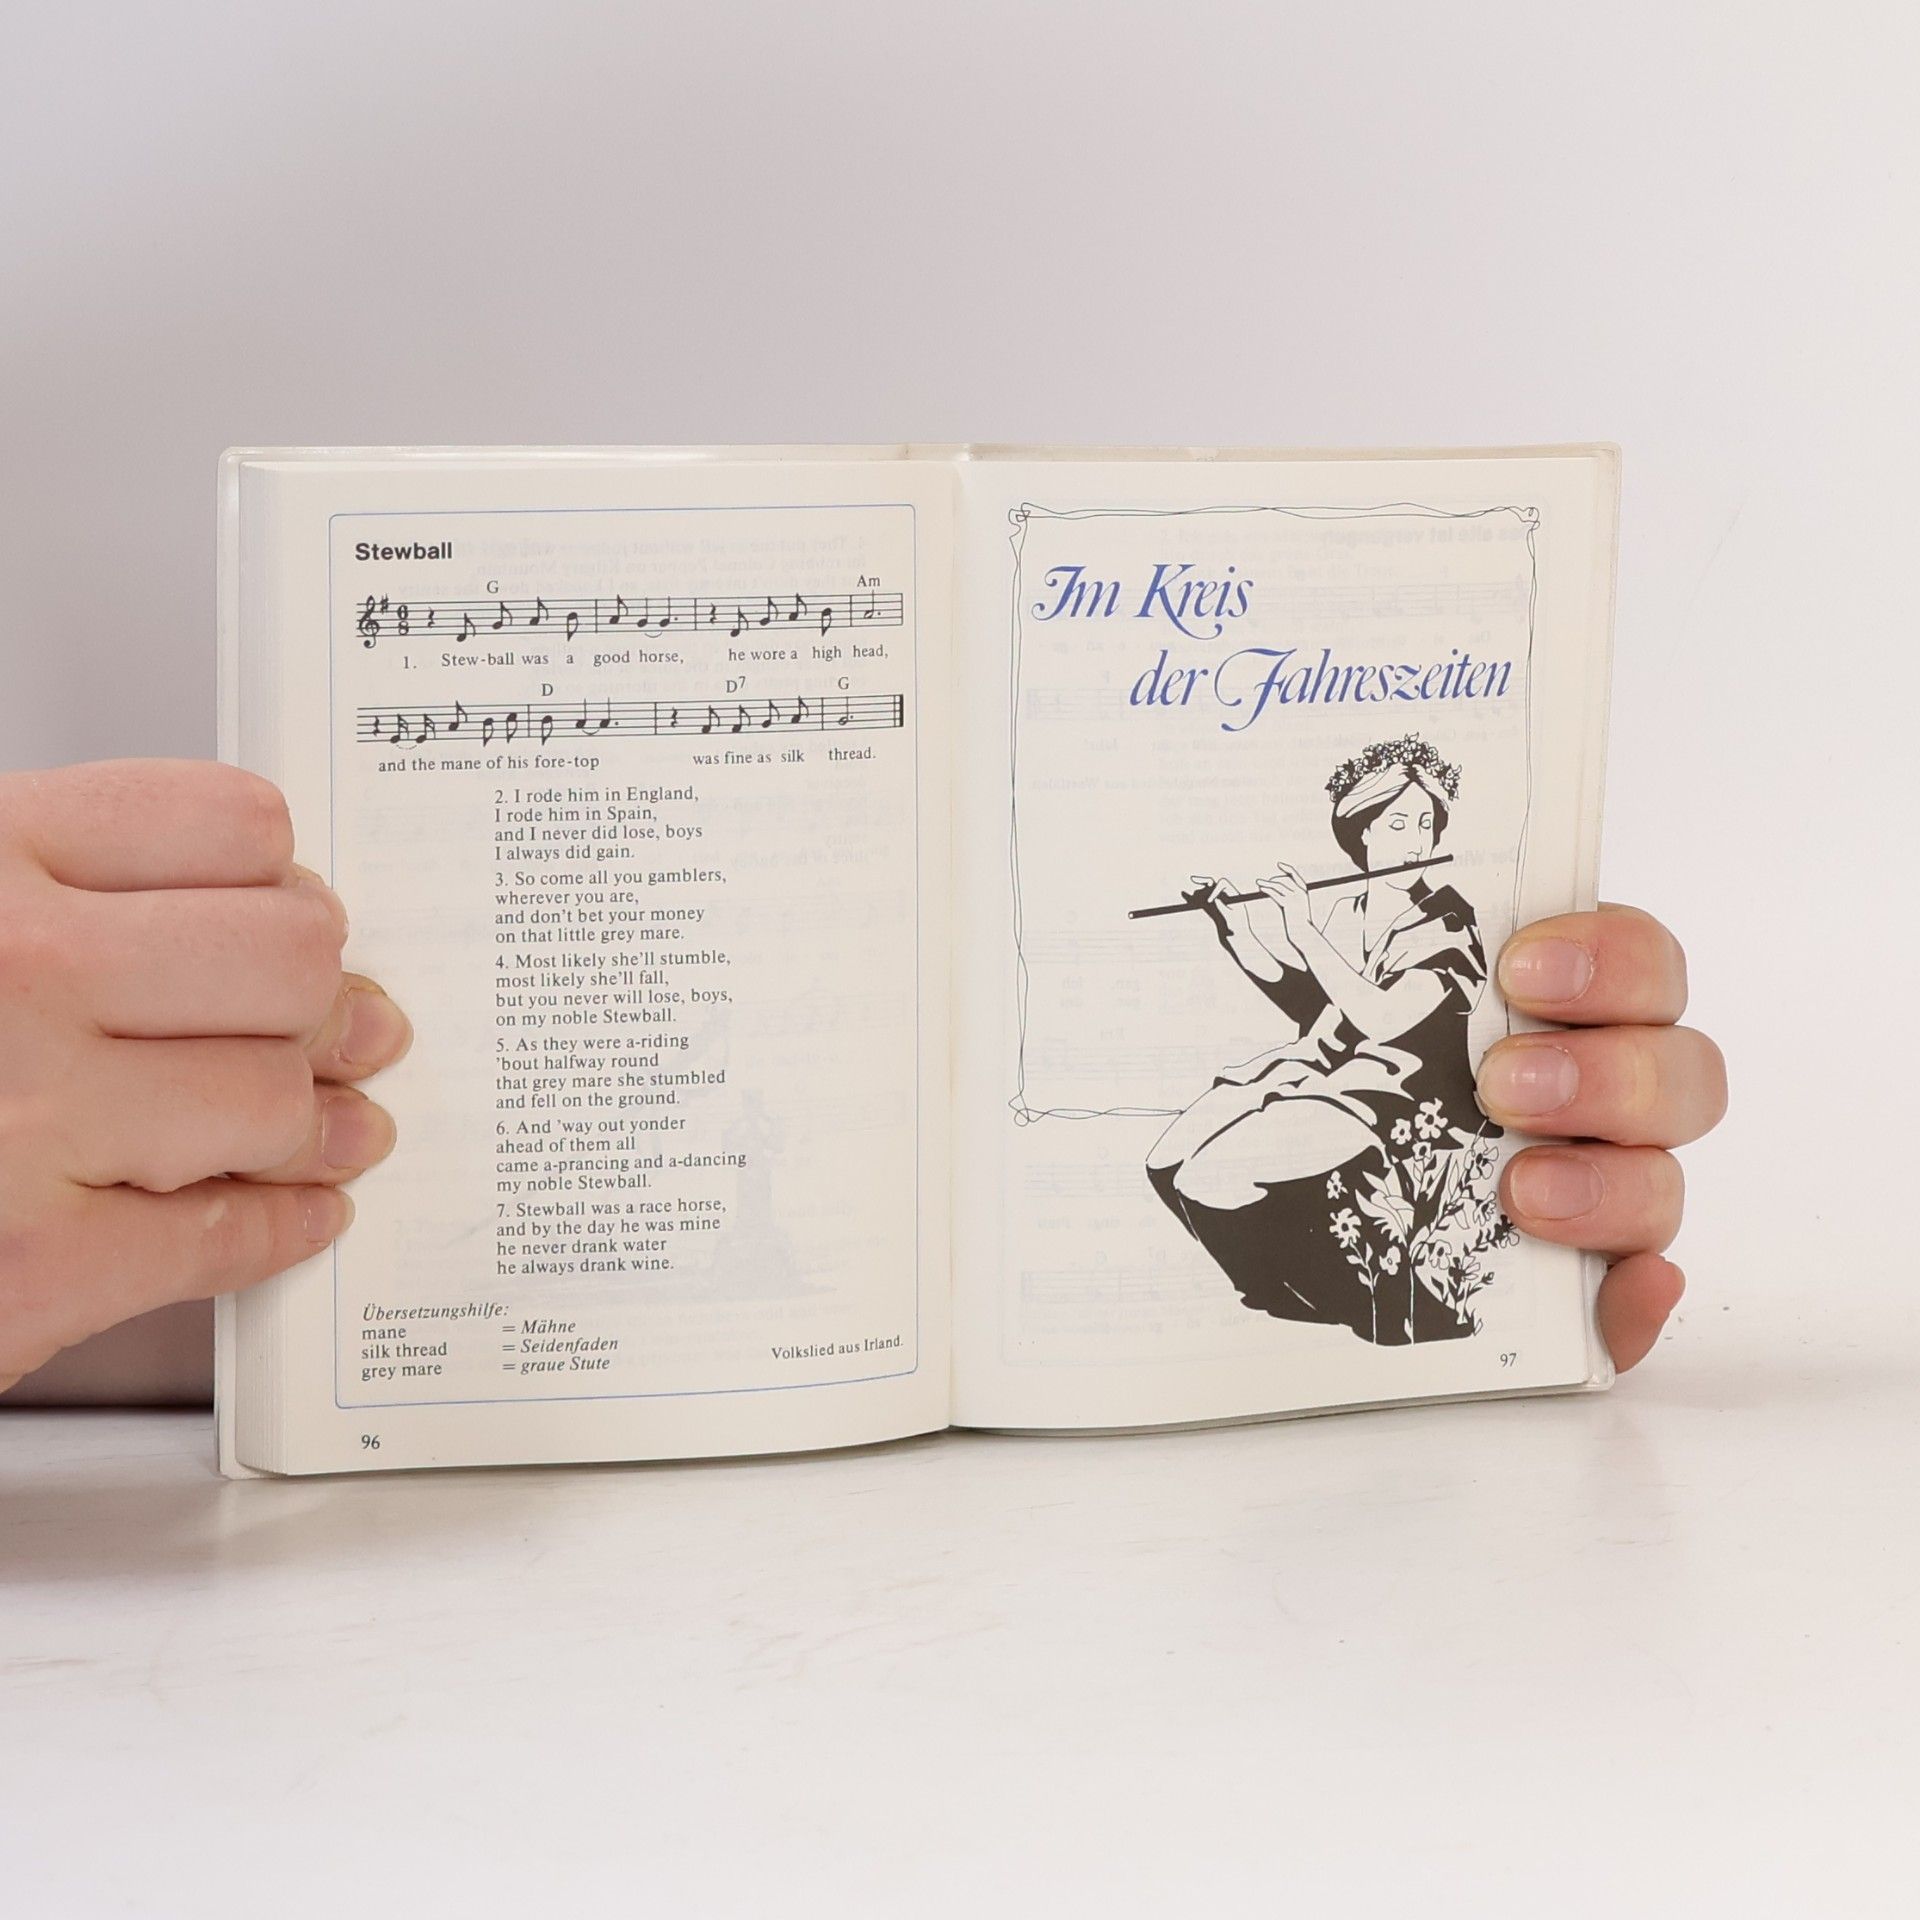 Stewball
G Am
1. Stew-ball was a good horse, he wore a high head,
D D7 G
and the mane of his fore-top was fine as silk thread.
2. I rode him in England,
I rode him in Spain,
and I never did lose, boys
I always did gain.
3. So come all you gamblers,
wherever you are,
and don't bet your money
on that little grey mare.
4. Most likely she'll stumble,
most likely she'll fall,
but you never will lose, boys,
on my noble Stewball.
5. As they were a-riding
'bout halfway round
that grey mare she stumbled
and fell on the ground.
6. And 'way out yonder
ahead of them all
came a-prancing and a-dancing
my noble Stewball.
7. Stewball was a race horse,
and by the day he was mine
he never drank water
he always drank wine.
Übersetzungshilfe:
mane = Mähne
silk thread = Seidenfaden
grey mare = graue Stute
Volkslied aus Irland.
96
Im Kreis
der Jahreszeiten
97